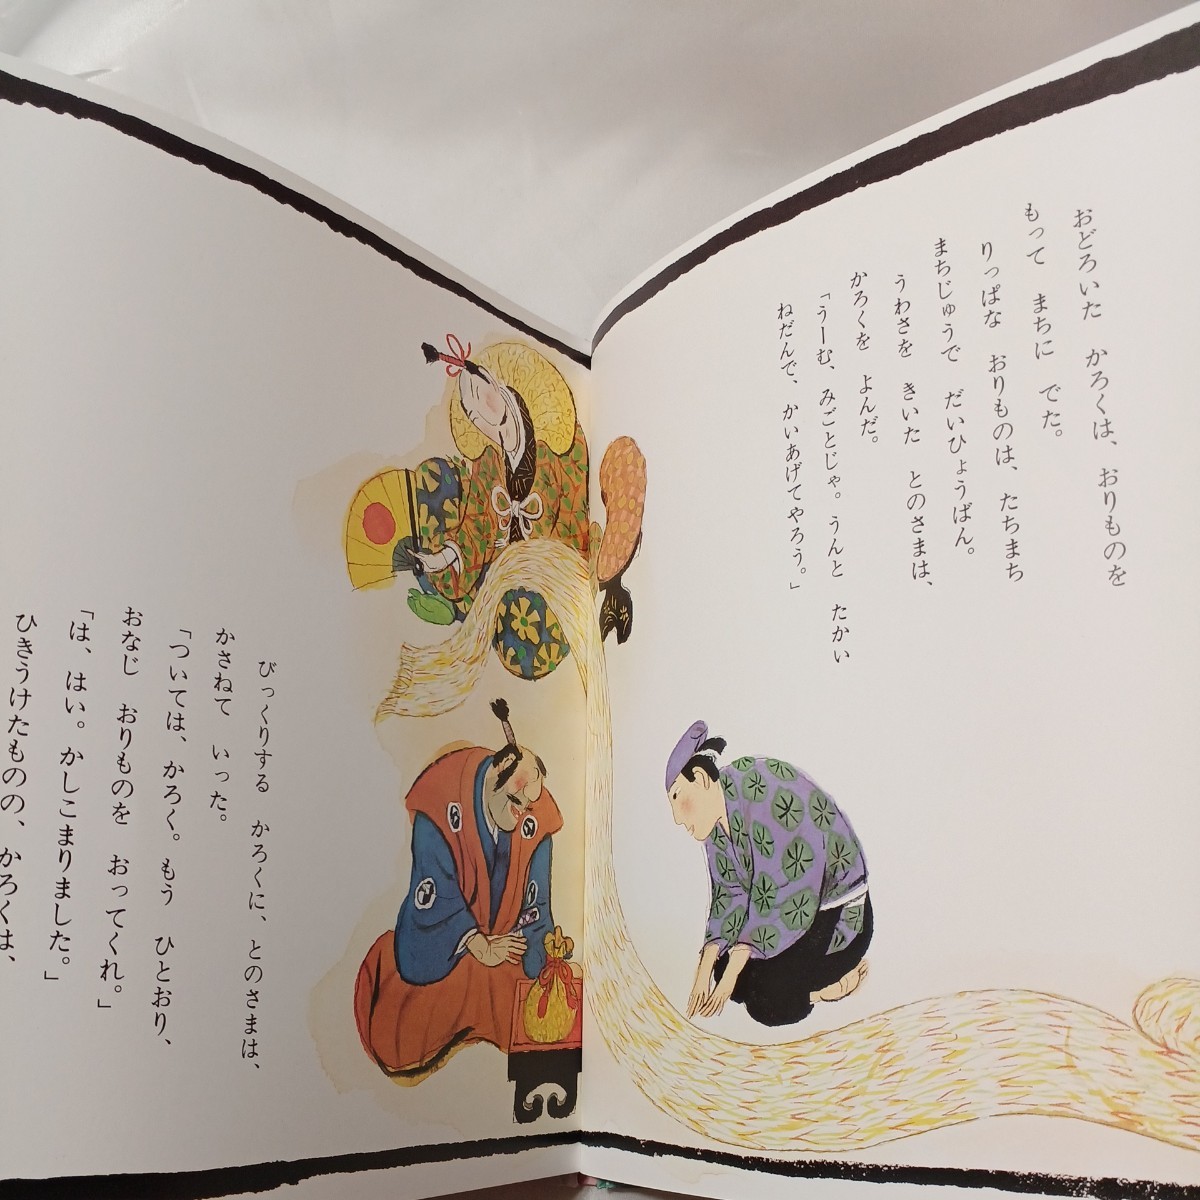 おどろいた　かろくは、おりものを
もって　まちに　でた。
りっぱな　おりものは、たちまち
まちじゅうで　だいひょうばん。
うわさを　きいた　とのさまは、
かろくを　よんだ。
「うーむ、みごとじゃ。うんと　たかい
ねだんで、かいあげてやろう。」
びっくりする　かろくに、とのさまは、
かさねて　いった。
「ついては、かろく。もう　ひとおり、
おなじ　おりものを　おってくれ。」
「は、はい。かしこまりました。」
ひきうけたものの、かろくは、